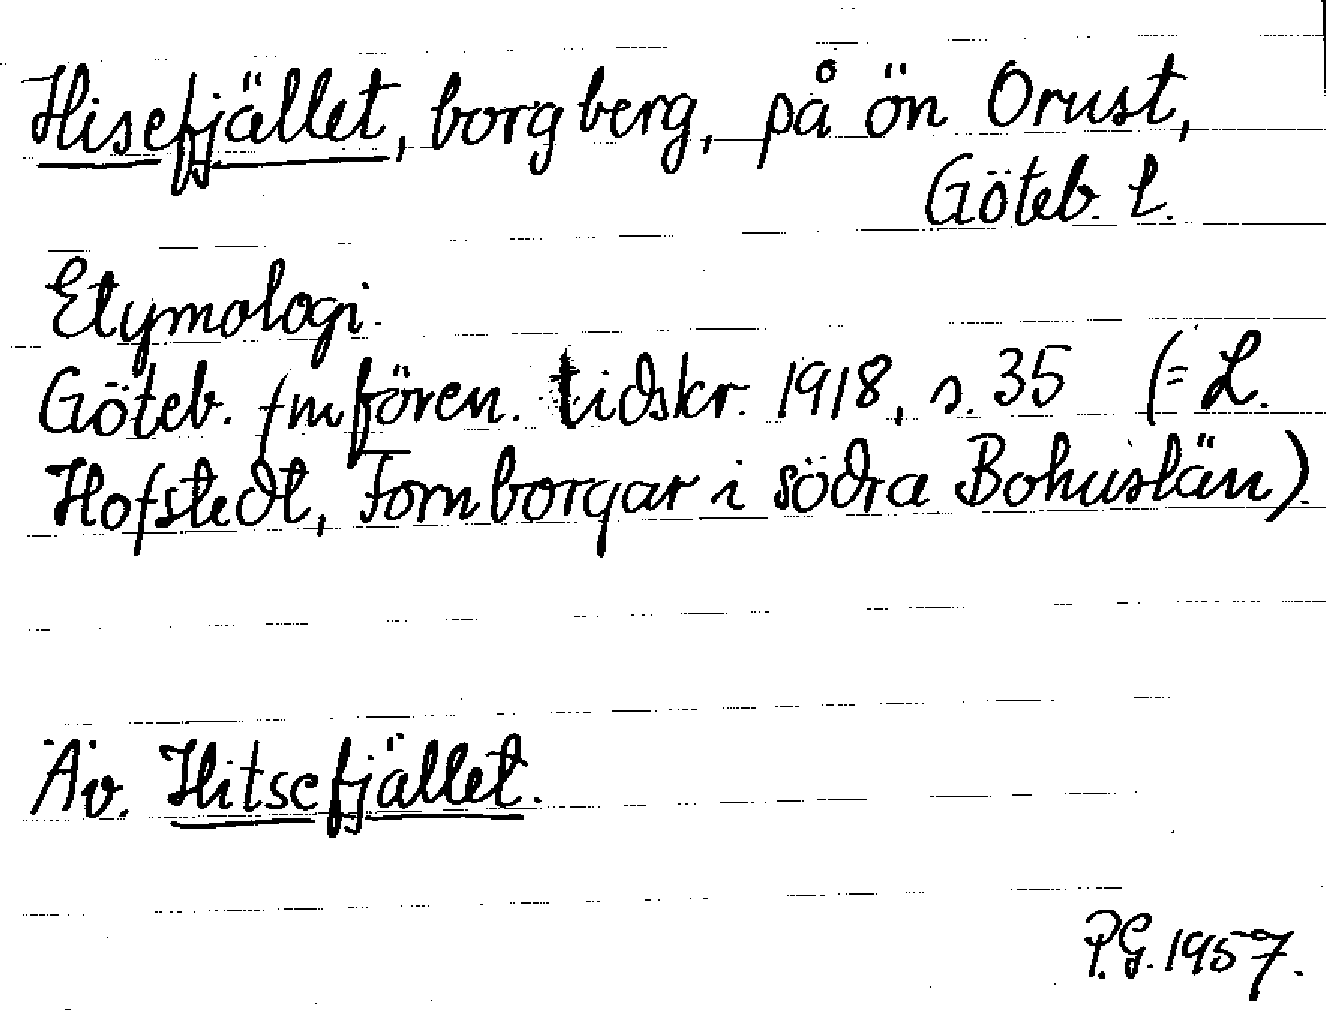 Hisefjället, borgberg, på ön Orust,
Göteb. l.
Etymologi.
Göteb. fmfören. tidskr. 1918, s. 35 (= L.
Hofstedt, Fornborgar i södra Bohuslän).
Äv. Hitsefjället.
P.G. 1957.